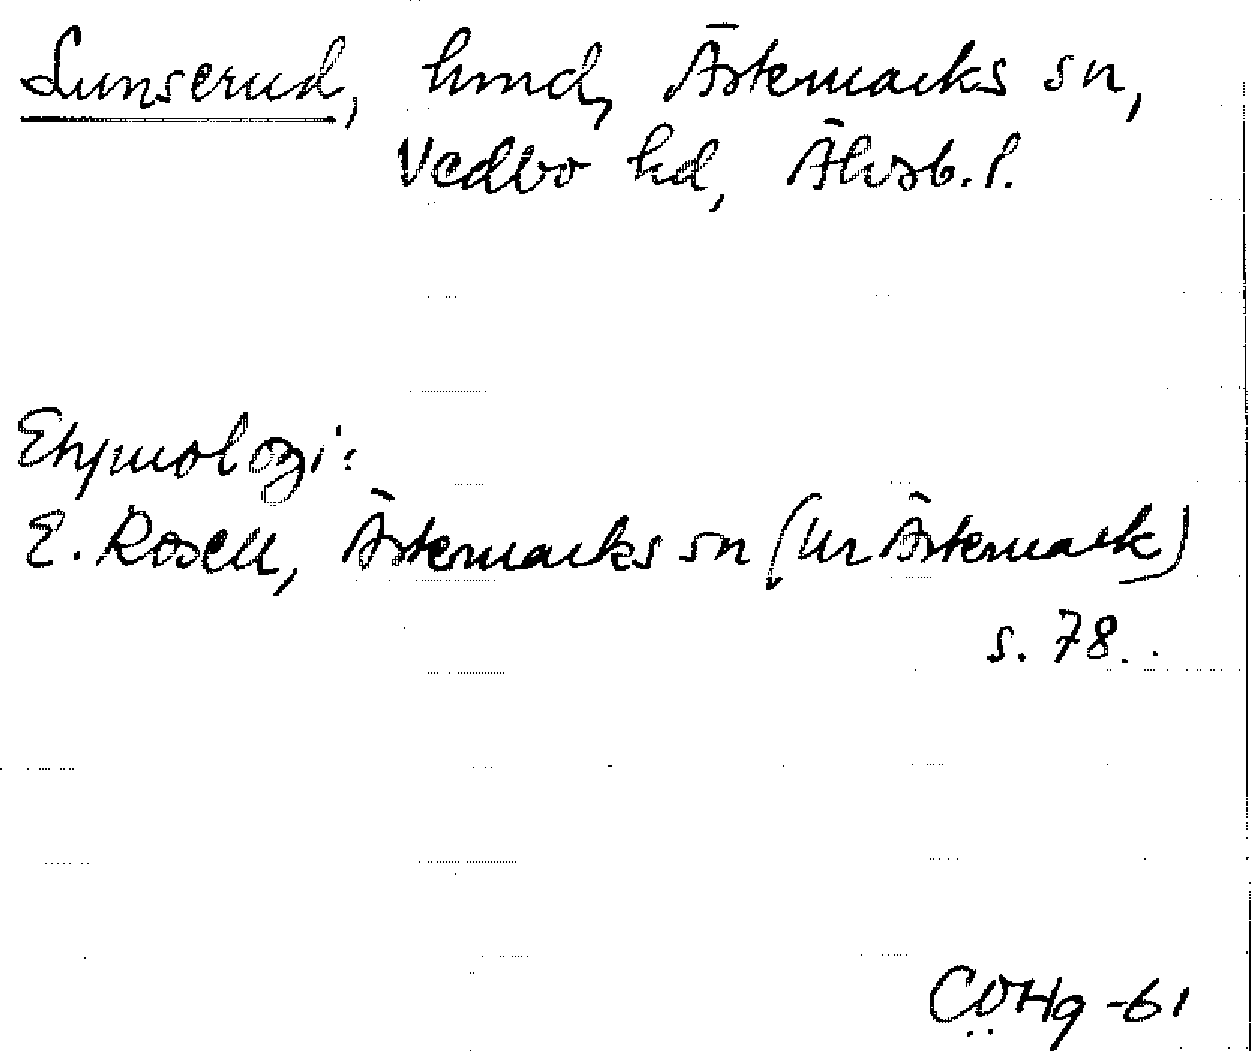 Lunserud, hmd, Ärtemarks sn,
Vedbo hd, Älvsb. l.
Etymologi:
E. Rosell, Ärtemarks sn (ur Ärtemark)
s. 78.
COHg -61